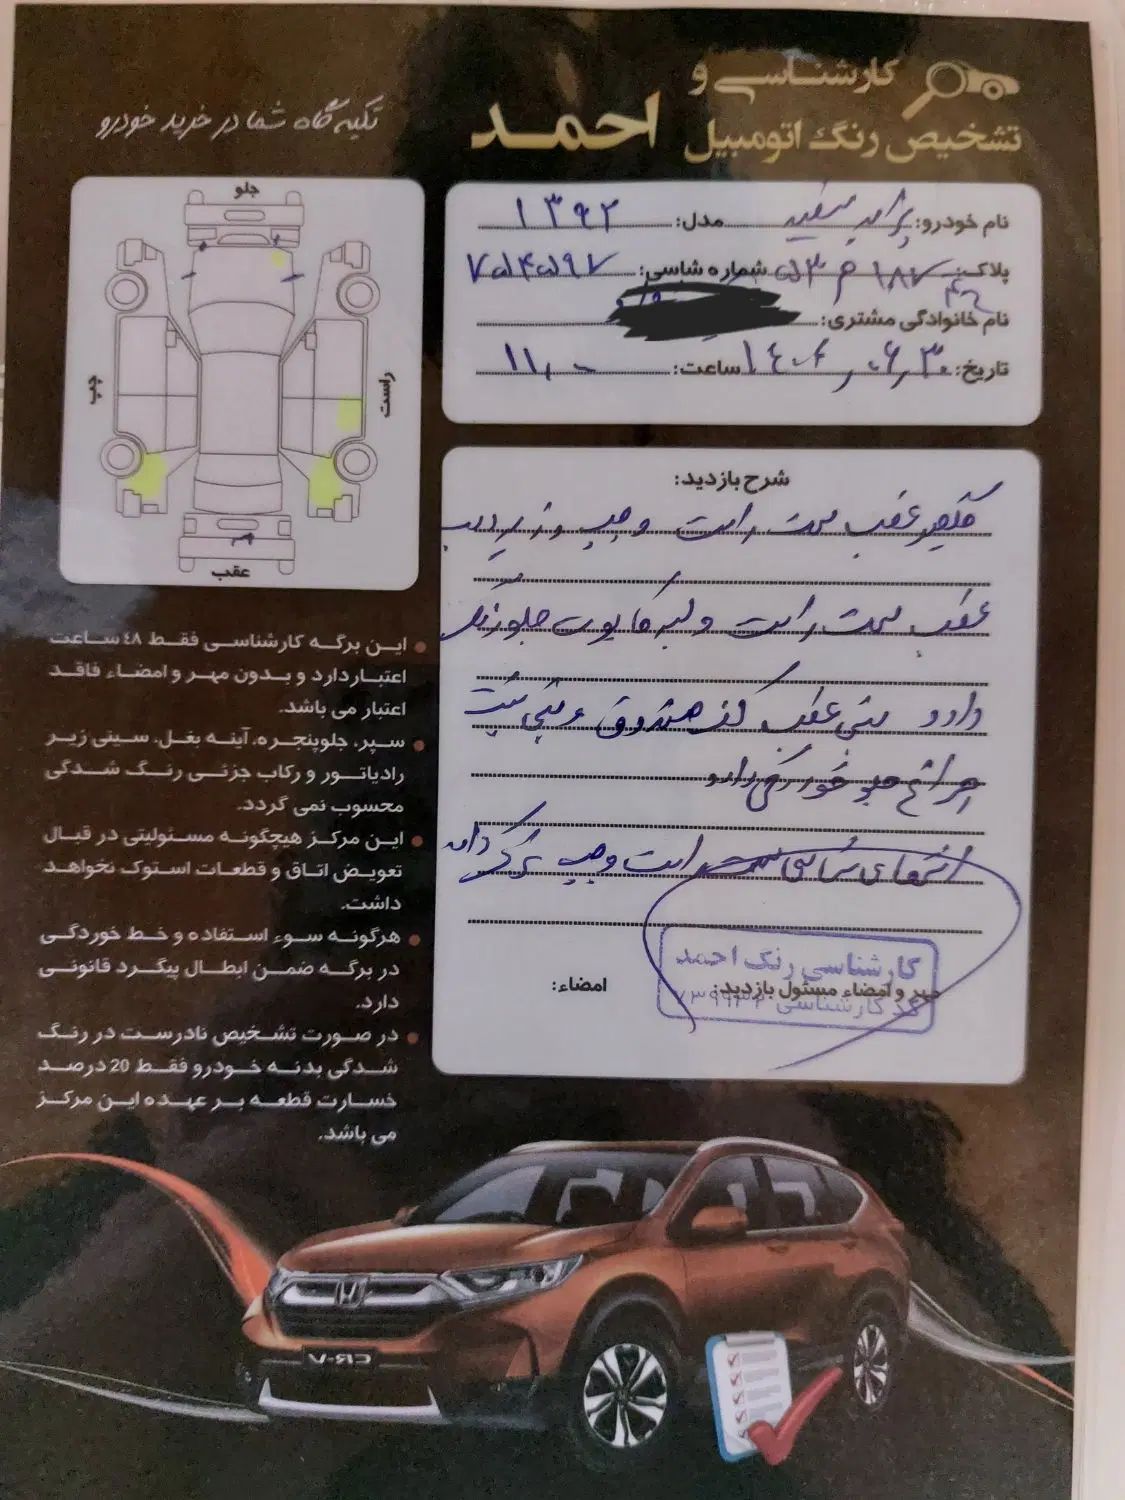 کارشناسی و
تشخیص رنگ اتومبیل
احمد
تکیه گاه شما در خرید خودرو
نام خودرو: پراید سفید مدل: ۱۳۹۲
پلاک: ۱۸۷ م ۵۳ شماره شاسی: ۷۵۴۵۹۷
نام خانوادگی مشتری:
تاریخ: ساعت: ۱۱,۰۰
جلو
چپ
راست
عقب
شرح بازدید:
گلگیر عقب سمت راست و چپ و زیر درب
عقب سمت راست و لبه کاپوت جلو رنگ
دارد سینی عقب کف صندوق سینی پشت
چراغ جلو خوردگی دارد
سمت راست و چپ ترک دارد
مهر و امضاء مسئول بازدید:
امضاء:
کارشناسی رنگ احمد
کد کارشناسی
این برگه کارشناسی فقط ٤٨ ساعت
اعتبار دارد و بدون مهر و امضاء فاقد
اعتبار می باشد.
سپر، جلوپنجره، آینه بغل، سینی زیر
رادیاتور و رکاب جزئی رنگ شدگی
محسوب نمی گردد.
این مرکز هیچگونه مسئولیتی در قبال
تعویض اتاق و قطعات استوک نخواهد
داشت.
هرگونه سوء استفاده و خط خوردگی
در برگه ضمن ابطال پیگرد قانونی
دارد.
در صورت تشخیص نادرست در رنگ
شدگی بدنه خودرو فقط 20 درصد
خسارت قطعه بر عهده این مرکز
می باشد.
CR-V